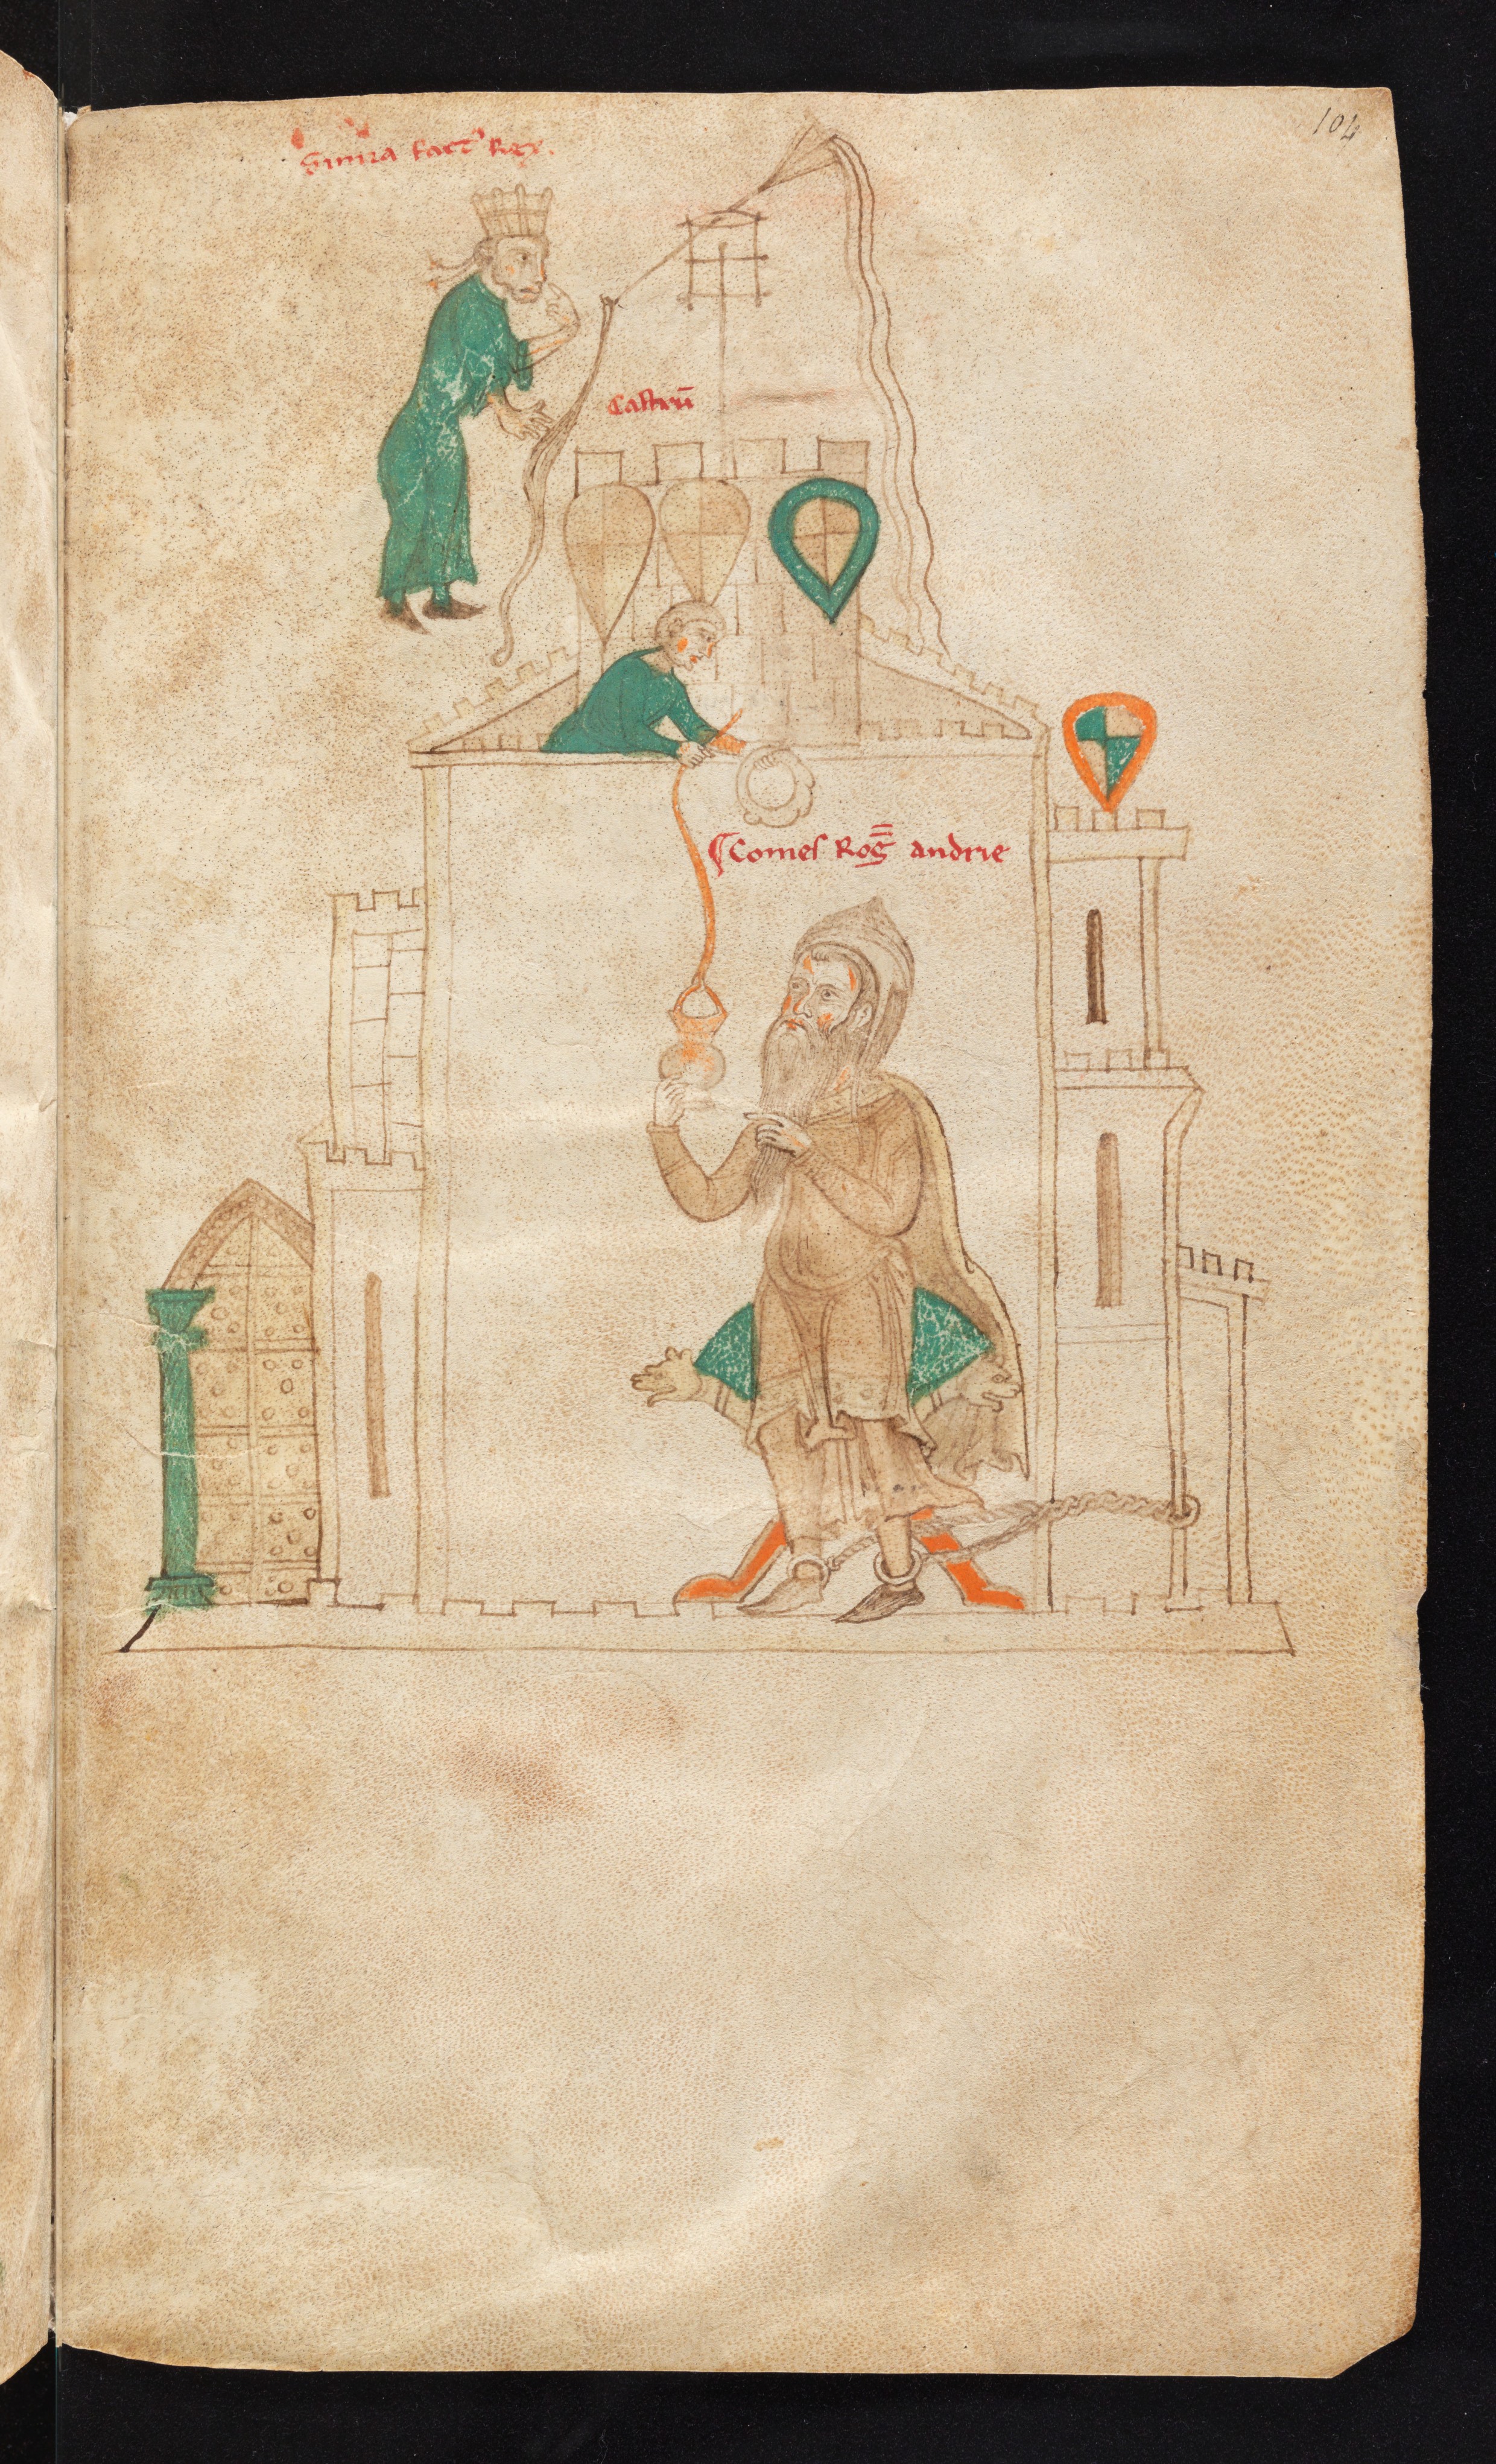 104
Simia fact' Rex.
Castrū
Comes Rog̅ andrie